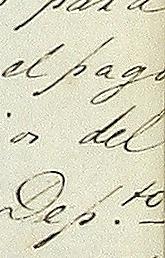 para
al pago
os del
Dep.to